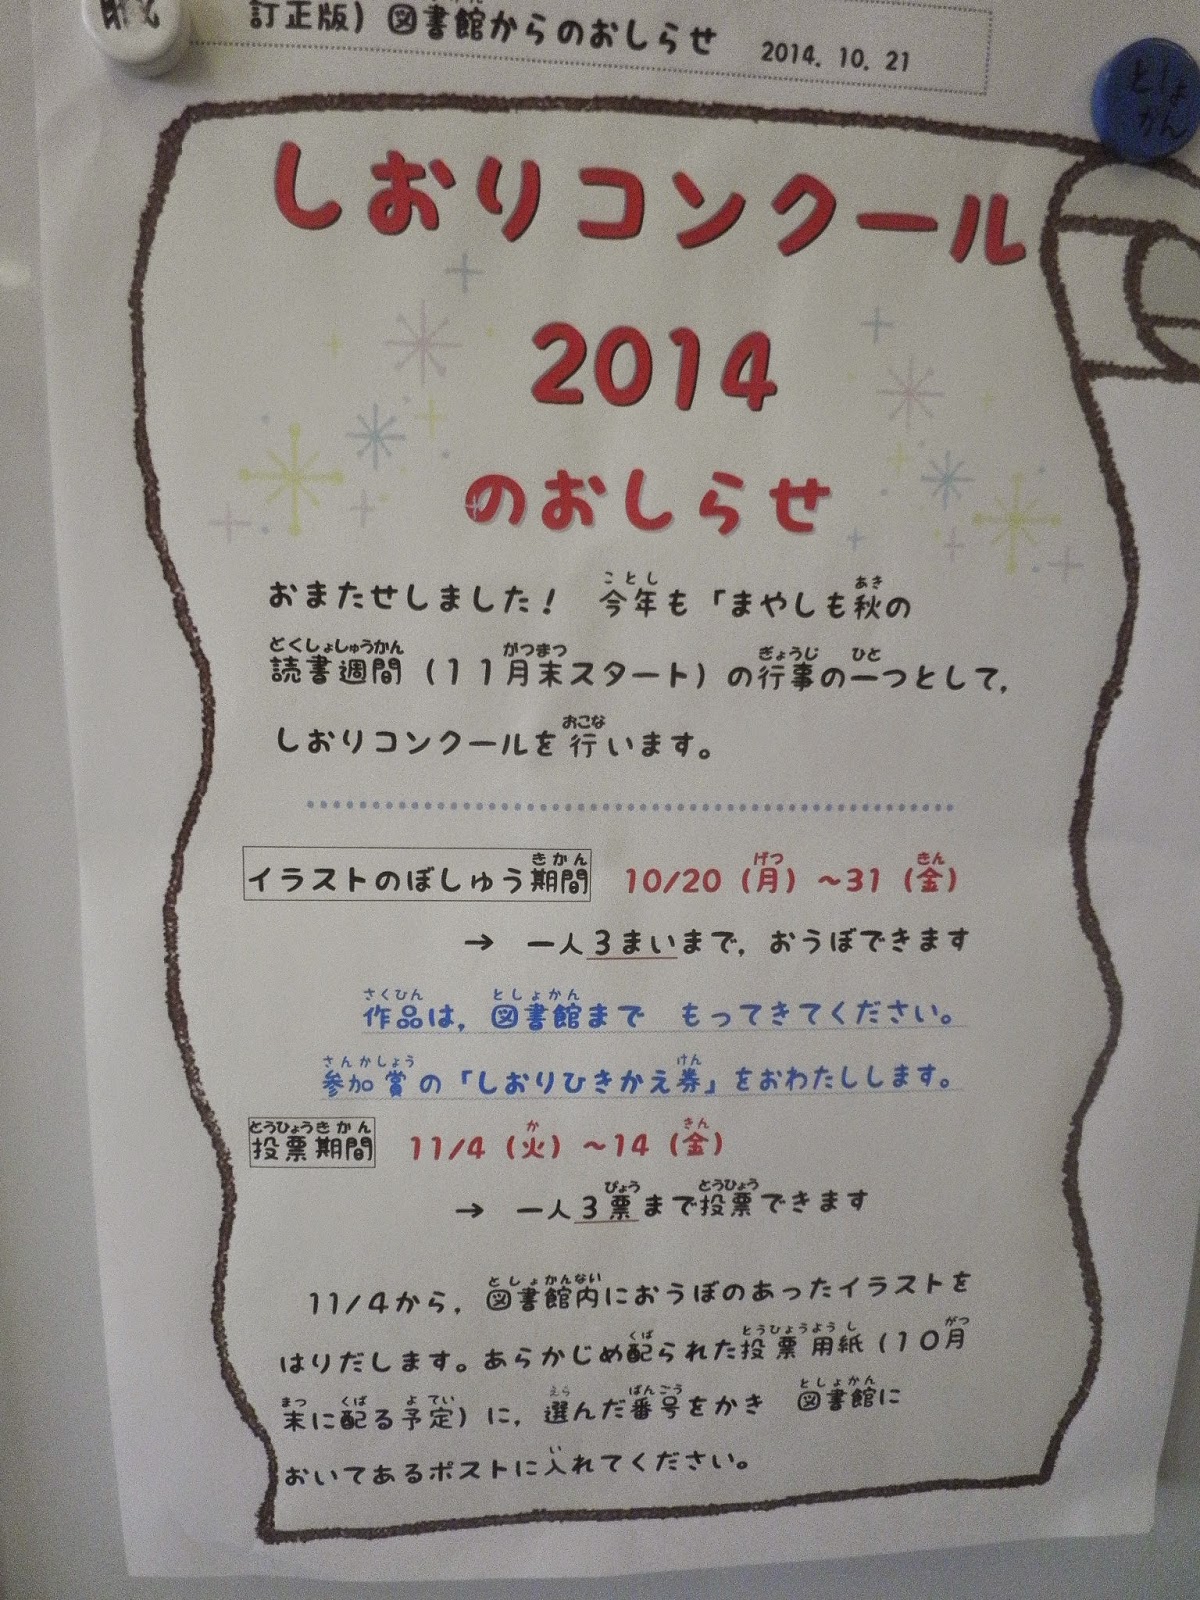 訂正版）図書館からのおしらせ　2014. 10. 21
としょ
かん
しおりコンクール
2014
のおしらせ
おまたせしました！　今年も「まやしも秋の
読書週間（１１月末スタート）の行事の一つとして，
しおりコンクールを行います。
イラストのぼしゅう期間　10/20（月）～31（金）
→　一人３まいまで，おうぼできます
作品は，図書館まで　もってきてください。
参加賞の「しおりひきかえ券」をおわたしします。
投票期間　11/4（火）～14（金）
→　一人３票まで投票できます
11/4から，図書館内におうぼのあったイラストを
はりだします。あらかじめ配られた投票用紙（１０月
末に配る予定）に，選んだ番号をかき　図書館に
おいてあるポストに入れてください。